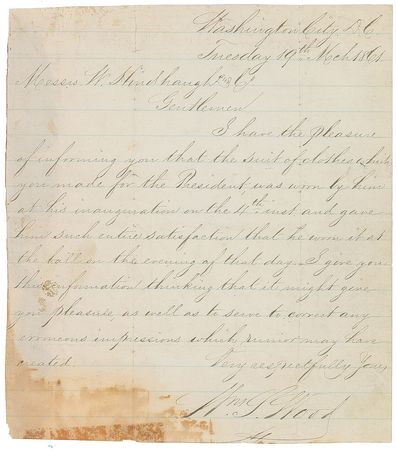 Washington City, D.C.
Tuesday 19th Mch 1861
Messrs W.
Gentlemen
I have the pleasure
of informing you that the suit of clothes which
you made for the President was worn by him
at his inauguration on the 4th inst and gave
him such entire satisfaction that he wore it at
the ball on the evening of that day. I give you
this information thinking that it might give
you pleasure as well as to serve to correct any
erroneous impressions which rumor may have
created.
Very respectfully Yours
Wm S. Wood